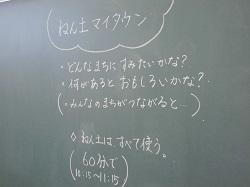 ねん土マイタウン
・どんなまちにすみたいかな?
・何があるとおもしろいかな?
(・みんなのまちがつながると…)
◇ねん土はすべて使う。
(60分で
10:15〜11:15)